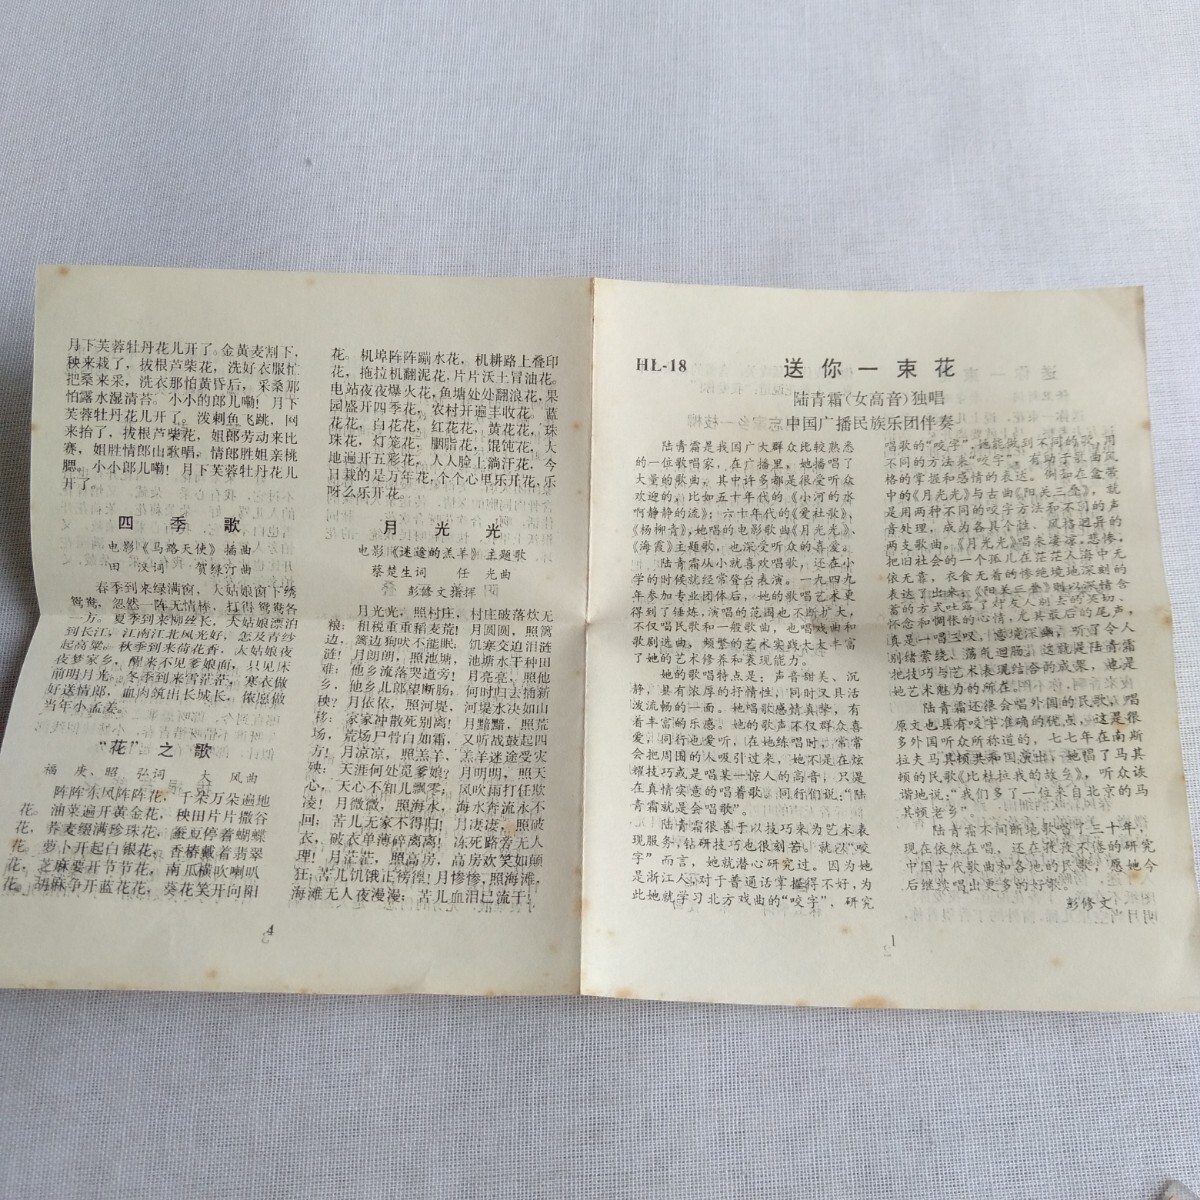 月下芙蓉牡丹花儿开了。金黄麦割下,
秧来栽了,拔根芦柴花,洗好衣服忙
把桑来采,洗衣那怕黄昏后,采桑那
怕露水湿清苔。小小的郎儿嘞!月下
芙蓉牡丹花儿开了。泼刺鱼飞跳,网
来抬了,拔根芦柴花,姐郎劳动来比
赛,姐胜情郎山歌唱,情郎胜姐亲桃
腮。小小郎儿嘞!月下芙蓉牡丹花儿
开了。
四季歌
电影《马路天使》插曲
田汉词 贺绿汀曲
春季到来绿满窗,大姑娘窗下绣
鸳鸯,忽然一阵无情棒,打得鸳鸯各
一方。夏季到来柳丝长,大姑娘漂泊
到长江,江南江北风光好,怎及青纱
起高粱。秋季到来荷花香,大姑娘夜
夜梦家乡,醒来不见爹娘面,只见床
前明月光。冬季到来雪茫茫,寒衣做
好送情郎,血肉筑出长城长,侬愿做
当年小孟姜。
“花”之歌
福庚、昭弘词 大风曲
阵阵东风阵阵花,千朵万朵遍地
花。油菜遍开黄金花,秧田片片撒谷
花,荞麦缀满珍珠花,蚕豆停着蝴蝶
花。萝卜开起白银花,香椿戴着翡翠
花,芝麻要开节节花,南瓜横吹喇叭
花。胡麻争开蓝花花,葵花笑开向阳
花。机埠阵阵蹦水花,机耕路上叠印
花,拖拉机翻泥花,片片沃土冒油花。
电站夜夜爆火花,鱼塘处处翻浪花,果
园盛开四季花,农村开遍丰收花。蓝
花花,白花花,红花花,黄花花,珠
珠花,灯笼花,胭脂花,馄饨花,大
地遍开五彩花,人人脸上淌汗花,今
日栽的是万年花,个个心里乐开花,乐
呀么乐开花。
月光光
电影《迷途的羔羊》主题歌
蔡楚生词 任光曲
彭修文指挥
月光光,照村庄,村庄破落炊无
粮;租税重重稻麦荒!月圆圆,照篱
边,篱边狗吠不能眠,饥寒交迫泪涟
涟!月朗朗,照池塘,池塘水干种田
难;他乡流落哭道旁!月亮亮,照他
乡,他乡儿郎望断肠;何时归去插新
秧?月依依,照河堤,河堤水决如山
移;家家冲散死别离!月黯黯,照荒
场,荒场尸骨白如霜,又听战鼓起四
方!月凉凉,照羔羊,羔羊迷途受灾
殃;天涯何处觅爹娘?月明明,照天
心,天心不知儿飘零;风吹雨打任欺
凌!月微微,照海水,海水奔流永不
回;苦儿无家不得归!月凄凄,照破
衣,破衣单薄碎离离;冻死路旁无人
理!月茫茫,照高房,高房欢笑如颠
狂;苦儿饥饿正徬徨!月惨惨,照海滩,
海滩无人夜漫漫;苦儿血泪已流干!
4
HL-18 送你一束花
陆青霜(女高音)独唱
中国广播民族乐团伴奏
陆青霜是我国广大群众比较熟悉
的一位歌唱家,在广播里,她播唱了
大量的歌曲,其中许多都是很受听众
欢迎的,比如五十年代的《小河的水
啊静静的流》;六十年代的《爱社歌》、
《杨柳青》,她唱的电影歌曲《月光光》、
《海霞》主题歌,也深受听众的喜爱。
陆青霜从小就喜欢唱歌,还在小
学的时候就经常登台表演。一九四九
年参加专业团体后,她的歌唱艺术更
得到了锤炼,演唱的范围也不断扩大,
不仅唱民歌和一般歌曲,也唱戏曲和
歌剧选曲,频繁的艺术实践大大丰富
了她的艺术修养和表现能力。
她的歌唱特点是:声音甜美、沉
静,具有浓厚的抒情性,同时又具活
泼流畅的一面。她唱歌感情真挚,有
着丰富的乐感。她的歌声不仅群众喜
爱,同行也爱听,在她练唱时,常常
会把周围的人吸引过来,她不是在炫
耀技巧或是唱某一惊人的高音,只是
在真情实意的唱着歌。同行们说:“陆
青霜就是会唱歌”。
陆青霜很善于以技巧来为艺术表
现服务,钻研技巧也很刻苦。就以“咬
字”而言,她就潜心研究过。因为她
是浙江人,对于普通话掌握得不好,为
此她就学习北方戏曲的“咬字”,研究
唱歌的“咬字”,她能做到不同的歌,用
不同的方法来“咬字”,有助于歌曲风
格的掌握和感情的表达。例如在盒带
中的《月光光》与古曲《阳关三叠》,就
是用两种不同的咬字方法和不同的声
音处理,成为各具个性、风格迥异的
两支歌曲。《月光光》唱来凄凉、悲惨,
把旧社会的一个孤儿在茫茫人海中无
依无靠,衣食无着的惨绝境地深刻的
表达了出来;《阳关三叠》则以深情含
蓄的方式吐露了好友人别去的关切、
怀念和惆怅的心情,尤其最后的尾声,
真是一唱三叹,意境深幽,听了令人
别绪萦绕、荡气迴肠,这就是陆青霜
把技巧与艺术表现结合的成果,也是
她艺术魅力的所在。
陆青霜还很会唱外国的民歌,唱
原文也具有咬字准确的优点,这是很
多外国听众所称道的,七七年在南斯
拉夫马其顿共和国演出,她唱了马其
顿的民歌《比杜拉我的故乡》,听众诙
谐地说:“我们多了一位来自北京的马
其顿老乡”。
陆青霜不间断地歌唱了三十年,
现在依然在唱,还在孜孜不倦的研究
中国古代歌曲和各地的民歌,愿她今
后继续唱出更多的好歌。
彭修文
1